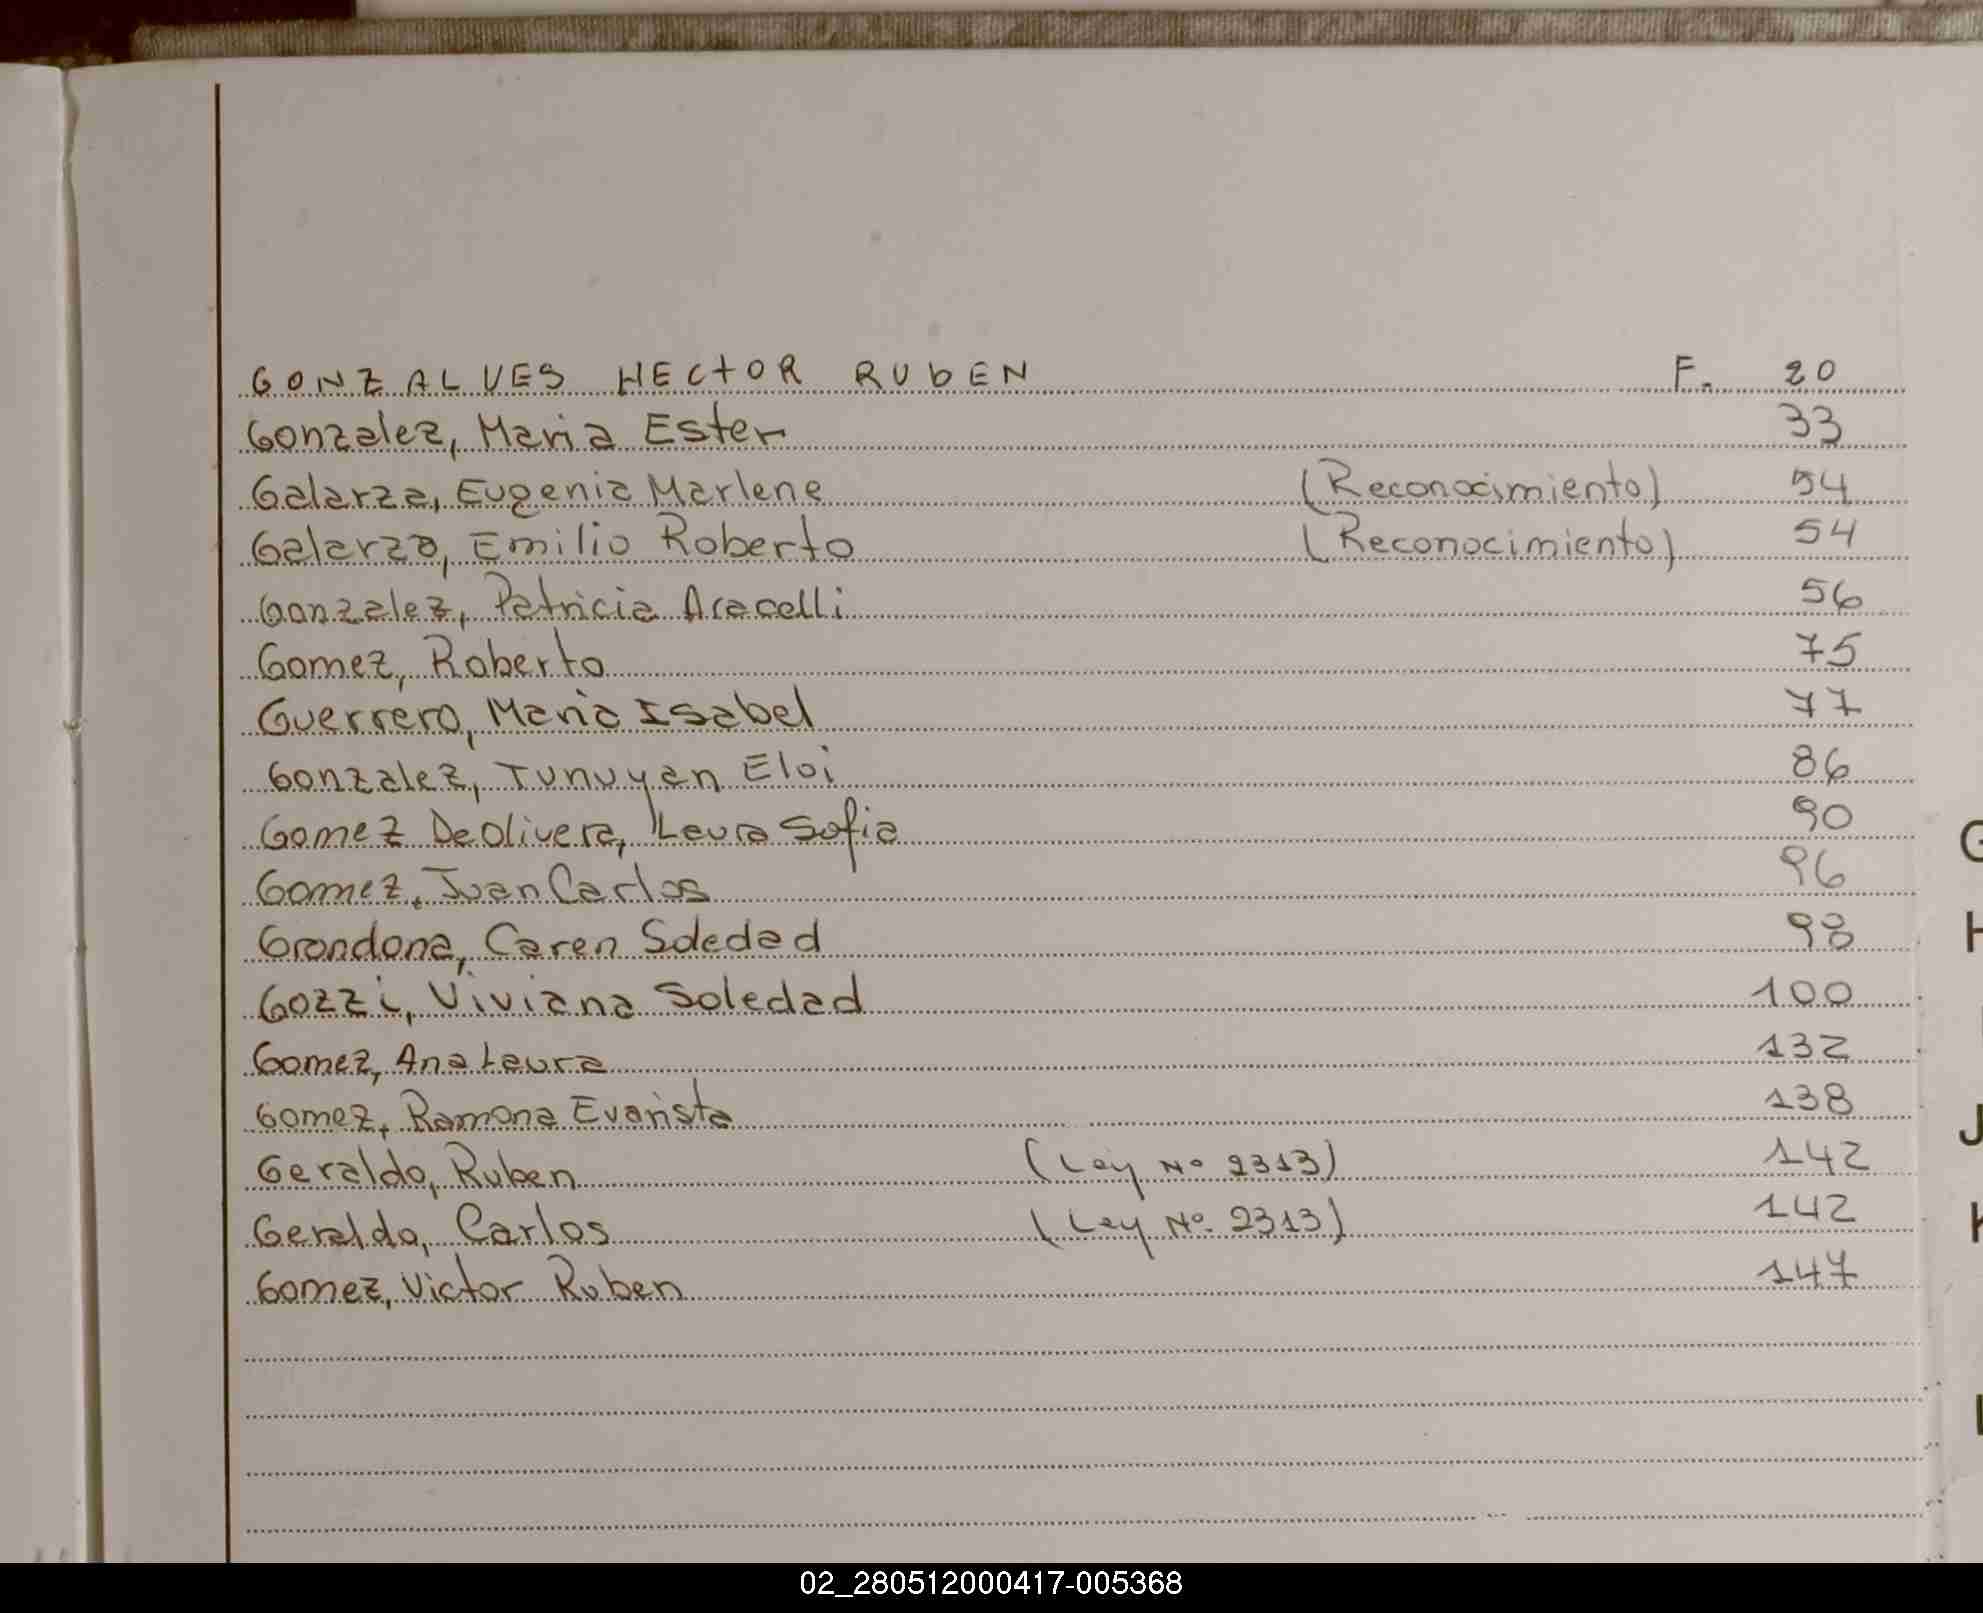 GONZALVES HECTOR RUBEN F. 20
Gonzalez, Maria Ester 33
Galarza, Eugenia Marlene (Reconocimiento) 54
Galarza, Emilio Roberto (Reconocimiento) 54
Gonzalez, Patricia Aracelli 56
Gomez, Roberto 75
Guerrero, Maria Isabel 77
Gonzalez, Tunuyan Eloi 86
Gomez De Olivera, Laura Sofia 90
Gomez, Juan Carlos 96
Grondona, Caren Soledad 98
Gozzi, Viviana Soledad 100
Gomez, Ana Laura 132
Gomez, Ramona Evarista 138
Geraldo, Ruben (Ley Nº 2313) 142
Geraldo, Carlos (Ley Nº 2313) 142
Gomez, Victor Ruben 147
G
H
J
K
L
02_280512000417-005368